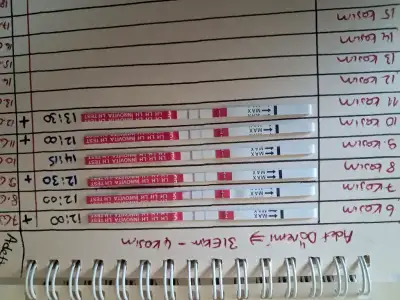 Adet Dönemi => 31 Ekim - 4 Kasım
Adet
6 Kasım MAX LH LH INNOVITA LH TEST 12:00 +
7 Kasım MAX LH LH INNOVITA LH TEST 12:05
8 Kasım MAX LH LH INNOVITA LH TEST 12:30 +
9 Kasım MAX LH LH INNOVITA LH TEST 14:15
10 Kasım MAX LH LH INNOVITA LH TEST 12:00 +
11 Kasım MAX LH LH INNOVITA LH TEST 13:30 +
12 Kasım
13 Kasım
14 Kasım
15 Kasım